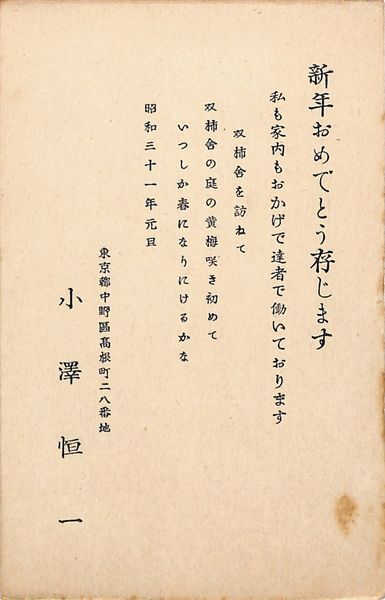 新年おめでとう存じます
私も家内もおかげで達者で働いております
双柿舎を訪ねて
双柿舎の庭の黄梅咲き初めて
いつしか春になりにけるかな
昭和三十一年元旦
東京都中野區高根町二八番地
小澤恒一